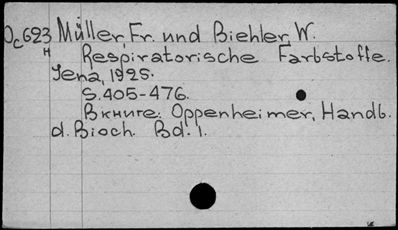 Oc623 Müller, Fr. und Biehler, W.
н Respiratorische Farbstoffe.
Jena, 1925.
S. 405-476.
В книге: Oppenheimer, Handb.
d. Bioch. Bd. 1.